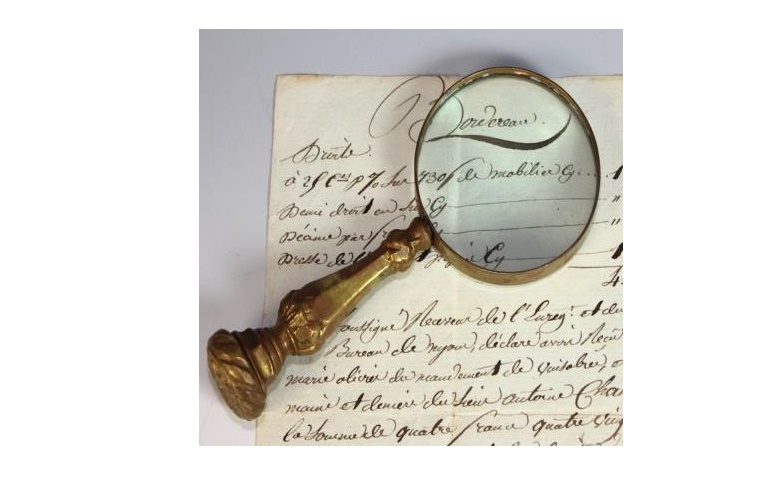 Bordereau.
Droits.
à 25 C.es p % sur 730f de mobilier Cy... 1
Demi droit en sus Cy "
Décime par franc Cy "
de Cy 1
4.
Soussigné Receveur de l'Enreg.t et du
Bureau de nyons, déclare avoir Reçu
marie olivier du mandement de
et demeure du Sieur antoine Cha
la Somme de quatre francs quatre ving